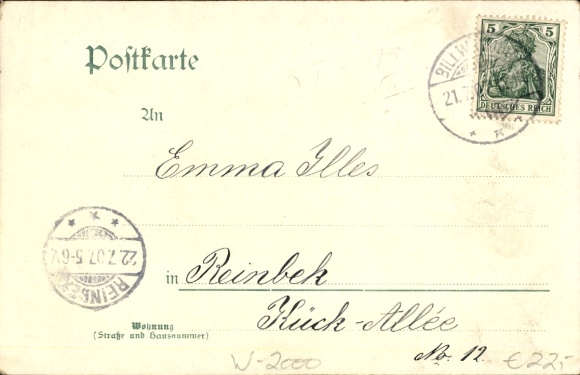 Postkarte
5 5
DEUTSCHES REICH
21.
An
Emma Illes
22.7.07.5-6N.
REINBEK
in Reinbek
Wohnung
(Straße und Hausnummer)
Kück-Allée
No. 12.
W-2000
€22,-